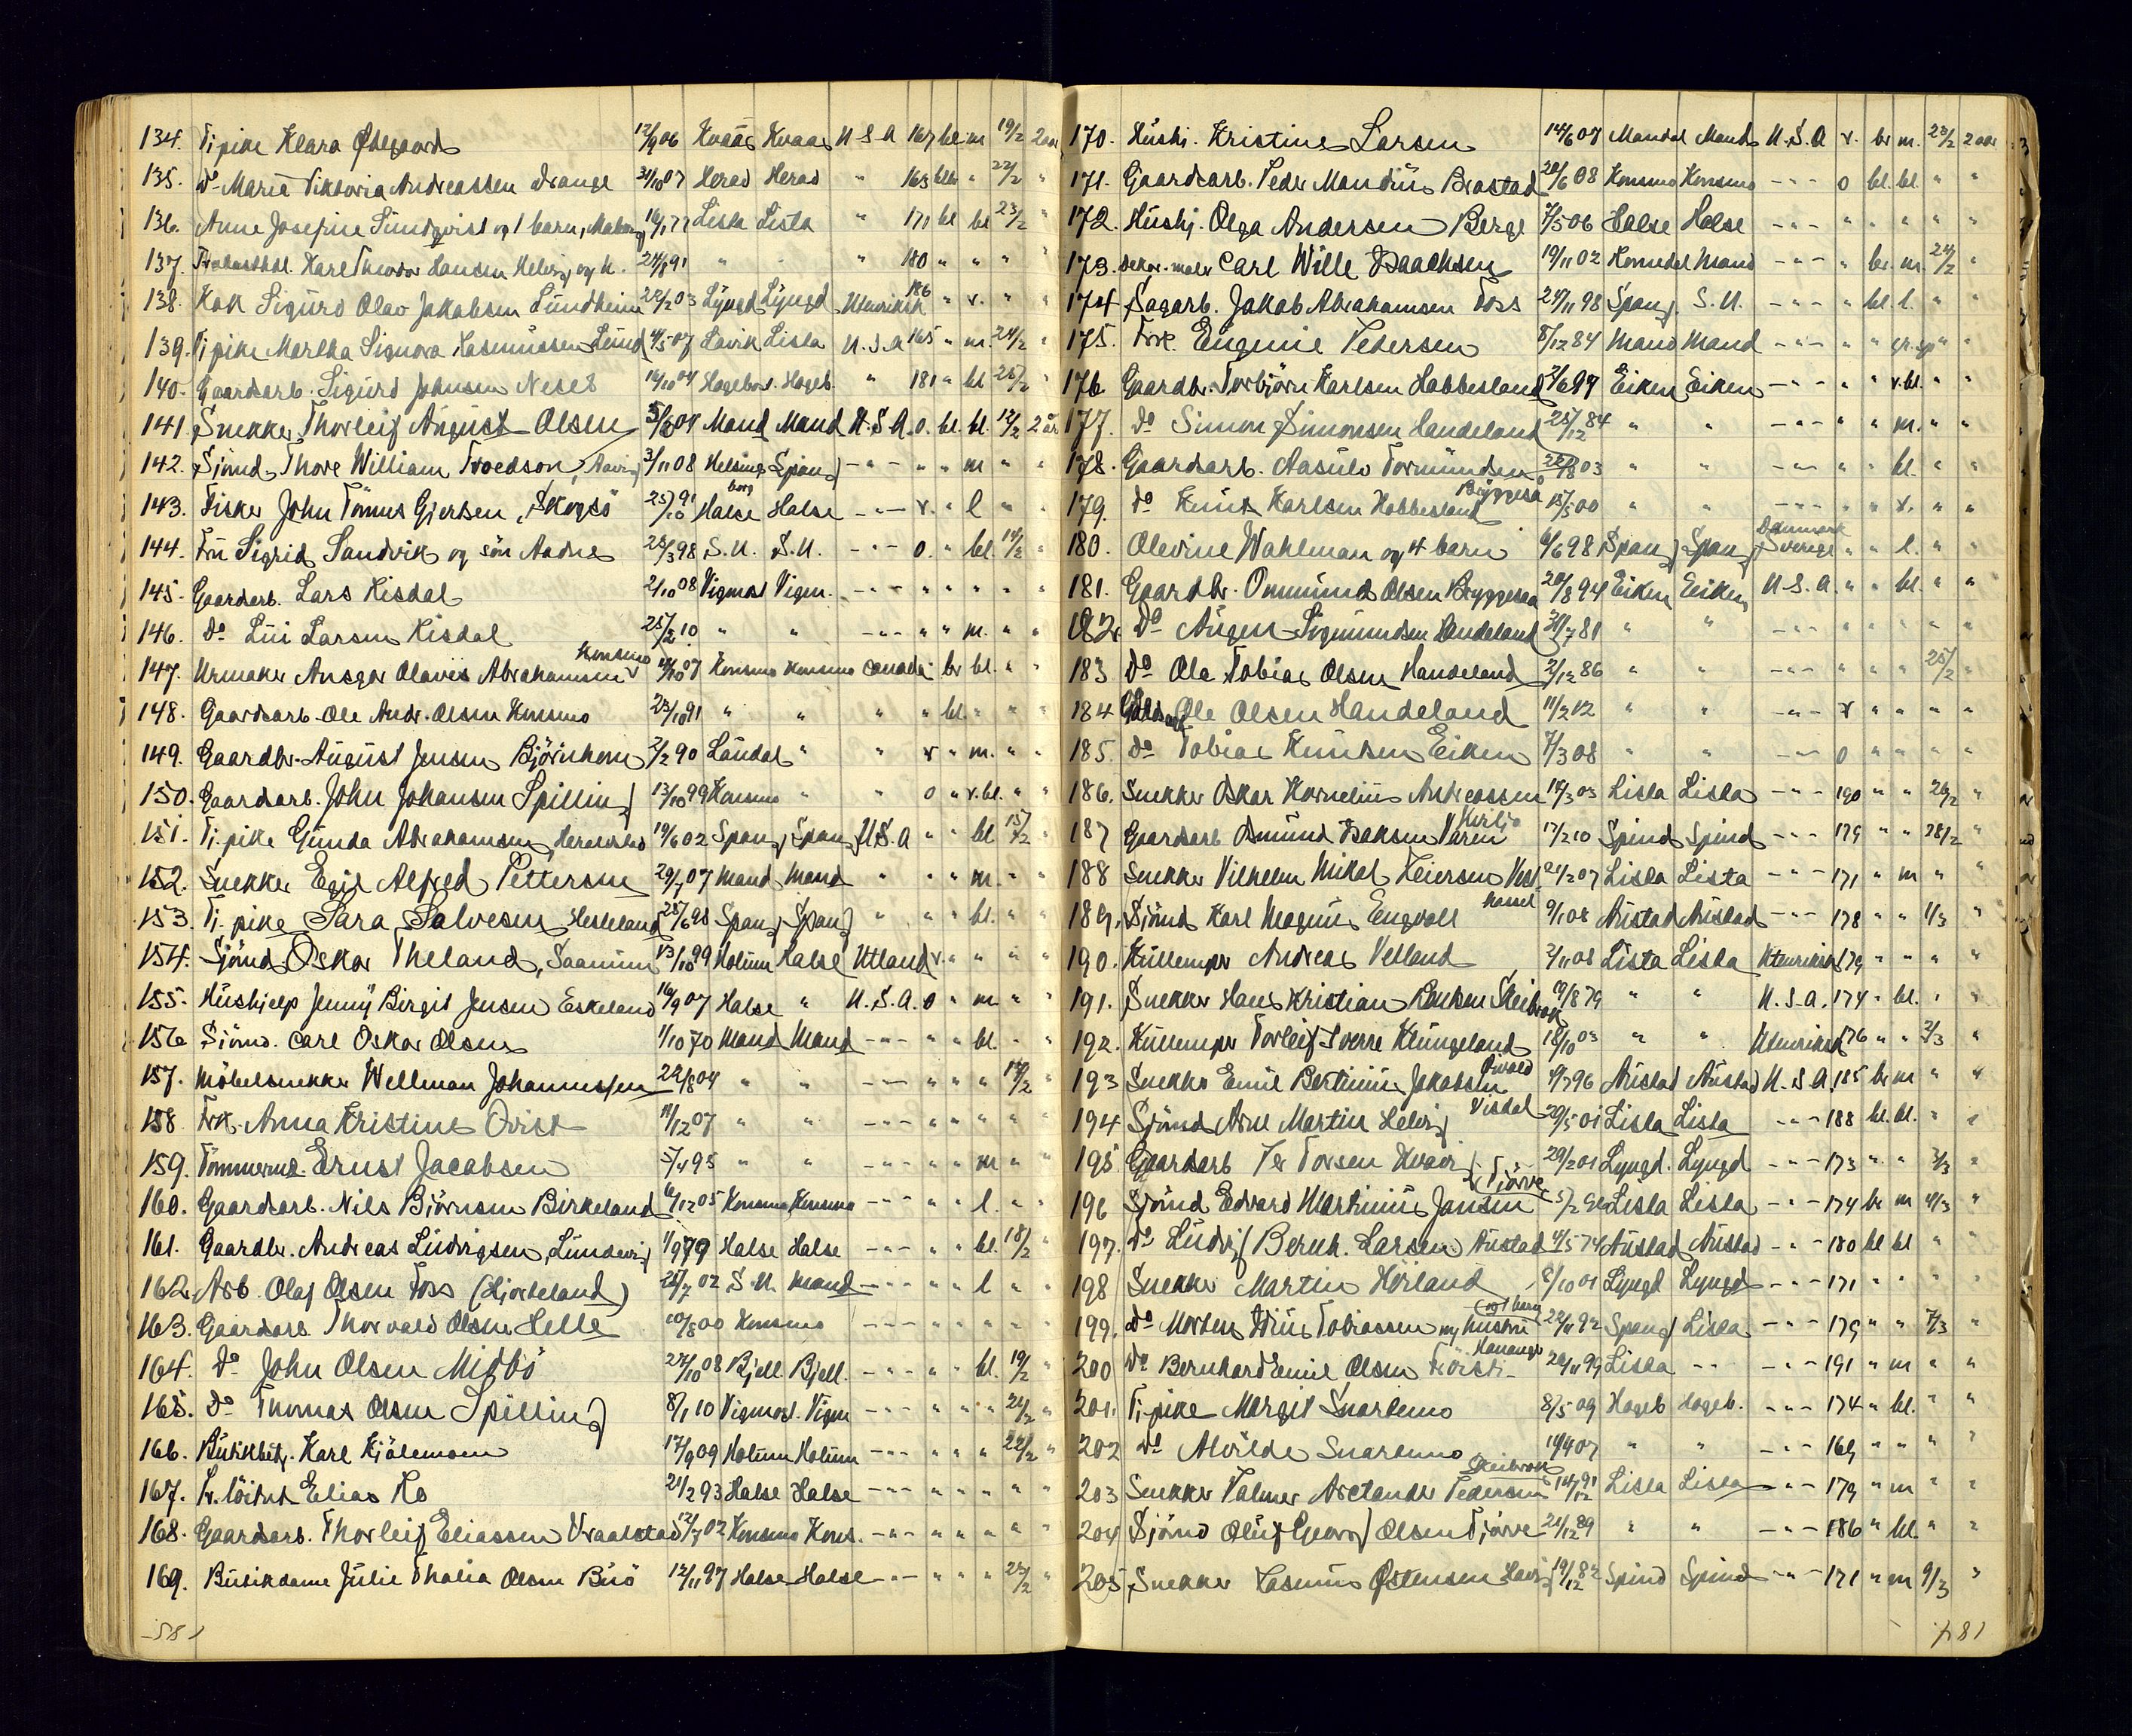 134. Tj.pike Klara Ødegaard 12/9 06 Kvaas Kvaas U S A 167 bl m 19/2 2 aar
135. Do Marie Viktoria Andreassen Drange 31/10 07 Herad Herad " 163 " 22/2 "
136. Anne Josefine Sundqvist og 1 barn, 16/1 77 Lista Lista " 171 bl bl 23/2 "
137. Karl Theodor Hansen Helvig og h. 24/8 91 " " " 180 " " " "
138. Kok Sigurd Olav Jakobsen Lundheim 22/2 03 Lyngd Lyngd Utenriksk 186 " v. " "
139. Tj pike Martha Signora Rasmussen Lund 4/5 07 Lavik Lista U.S.A 165 " m. 24/2 "
140. Gaardarb. Sigurd Johnsen Neset 14/10 04 Hægebost. Hægeb. " 181 " bl 26/2 "
141. Snekker Thorleif August Olsen 5/6 04 Mand Mand U.S.A. o. bl. bl. 12/2 2 år
142. Sjömd. Thore William Troedson, 3/11 08 Helsingborg Spang. - " - " " m " "
143. Fisker John Tönnes Gjertsen, Skogsö 25/10 91 Halse Halse - " - v. " l " "
144. Fru Sigrid Sandvik og sön Aadne 28/3 98 S.U. S.U. - " - o. " bl. 14/2 "
145. Gaardarb. Lars Kisdal 2/10 08 Vigmost Vigm. - " - " " " " "
146. Do Lui Larsen Kisdal 25/2 10 " " - " - " " m. " "
147. Urmaker Ansgar Olaves Abrahamsen Konsmo 14/10 07 Konsmo Konsmo Canada " br bl. " "
148. Gaardarb. Ole Andr. Olsen Konsmo 23/10 91 " " " " bl. " " "
149. Gaardbr. August Jensen Björnhom 2/2 90 Laudal " " v " m. " "
150. Gaardarb. John Johansen Spilling 13/10 99 Konsmo " " o " v.bl. " "
151. Tj. pike Gunda Abrahamsen, Heraldstad 19/6 02 Spang. Spang. U.S.A " " bl 15/2 "
152. Snekker Egil Alfred Pettersen 29/7 07 Mand Mand " " " m. " "
153. Tj. pike Sara Salvesen Hesteland 25/6 98 Spang. Spang. " " " bl. " "
154. Sjömd. Oskar Theland, Saanum 13/10 99 Holum Halse Utland v. " " " "
155. Hushjelp Jenny Birgit Jensen Eskeland 16/9 07 Halse " U.S.A. o " m " "
156 Sjömd. Carl Oskar Olsen 1/10 70 Mand Mand - " - " " bl. " "
157. Möbelsnekker Wellman Johannessen 22/8 04 " " - " - " " " 17/2 "
158 Frk. Anna Kristine Qvist 11/12 07 " " - " - " " " " "
159. Tömmermd. Ernst Jacobsen 5/4 95 " " - " - " " m " "
160. Gaardarb. Nils Björnsen Birkeland 6/12 05 Konsmo Konsmo - " - " " l. " "
161. Gaardbr. Andreas Ludvigsen, Lundevig 1/9 79 Halse Halse - " - " " bl. 18/2 "
162. Arb. Olaf Olsen Foss (Ljosteland) 25/7 02 S.U. Mand - " - " " l " "
163. Gaardarb. Thorvald Olsen Helle 20/8 00 Konsmo - " - " " " " "
164. Do John Olsen Midbö 27/10 08 Bjell. Bjell. - " - " " bl. 19/2 "
165. Do Thomas Olsen Spilling 8/1 10 Vigmost. Vigm - " - " " " 21/2 "
166. Butikbetj. Karl Kjölemoen 17/9 09 Holum Holum - " - " " " 22/2 "
167. Pr. löitnt Elias Ro 21/2 93 Halse Halse - " - " " " " "
168. Gaardarb. Thorleif Eliassen Vraalstad 12/7 02 Konsmo Kons. - " - " " " " "
169. Butikdame Julie Thalia Olsen Buö 12/11 97 Halse Halse - " - " " " 23/2 "
581
170. Hushj. Kristine Larsen 14/6 07 Mandal Mand. U.S.A v. br m. 23/2 2 aar
171. Gaardarb. Peder Mandius Brastad 20/6 08 Konsmo Konsmo - " - o bl. bl. " "
172. Hushj. Olga Andersen Berge 7/5 06 Halse Halse - " - " " " " "
173. Dekor. maler Carl Wille Isaachsen 19/11 02 Mand - " - " br. m. 24/2 "
174 Sagarb. Jakob Abrahamsen Foss 24/11 98 Spang. S.U. - " - " bl. l. " "
175. Frk. Eugenie Pedersen 8/12 84 Mand Mand - " - " " gr.sp " "
176 Gaardbr. Torbjörn Karlsen Hobbesland 2/6 97 Eiken Eiken - " - " " v.bl. " "
177. Do Simon Simonsen Handeland 25/12 84 " " - " - " " m. " "
178. Gaardarb. Aasulv Tormundsen Byggesa 22/8 03 " " - " - " " bl. " "
179. Do Knut Karlsen Hobbesland 15/5 00 " " - " - " " v. " "
180. Olevine Wahlman og 4 barn 6/6 98 Spang. Spang. Danmark Sverige " " l. " "
181. Gaardbr. Ommund Olsen Bryggesaa 20/8 94 Eiken Eiken U.S.A. " " bl. " "
182. Do Augen Sigmundsen Handeland 30/7 81 " " - " - " " " " "
183 Do Ole Tobias Olsen Handeland 2/12 86 " " - " - " " " 25/2 "
184 Ole Olsen Handeland 11/2 12 " " - " - v " " " "
185. Do Tobias Knutsen Eiken 7/3 08 " " - " - o " " " "
186. Snekker Oskar Kornelius Andreassen 18/3 03 Lista Lista - " - 190 " " 26/2 "
187 Gaardarb Asmund Isaksen 17/2 10 Spind Spind - " - 179 " " 28/2 "
188 Snekker Vilhelm Mikal Reiersen Vest 24/2 07 Lista Lista - " - 171 " m " "
189. Sjömd Karl Magnus Eengvall 9/1 08 Austad Austad - " - 178 " " 1/3 "
190. Kullemper Andreas Velland 2/11 08 Lista Lista Utenriksk 179 " " " "
191. Snekker Hans Kristian Skeibrok 19/8 79 " " U.S.A. 174 " bl. " "
192. Kullemper Torleif Sverre Klungeland 18/10 03 " " Utenriksk 176 " " 2/3 "
193 Snekker Emil Bertinius Jakobsen Qvald 4/7 96 Austad Austad U.S.A. 185 br m " "
194 Sjömd Arne Martin Helvig Visdal 20/5 01 Lista Lista - " - 188 bl. bl. " "
195 Gaardarb Per Torsen 29/2 01 Lyngd. Lyngd - " - 173 " " 3/3 "
196 Sjömd Edvard Martinius Jansen Tjörve 5/2 Lista Lista - " - 174 br m 4/3 "
197. Do Ludvig Bernh. Larsen Austad 4/5 74 Austad Austad - " - 180 bl bl " "
198 Snekker Martin Hörland 6/10 01 Lyngd Lyngd - " - 171 " " " "
199. Do Morten Tobiassen og hustru (og 1 barn) 22/11 92 Spang. Lista - " - 179 " " 7/3 "
200 Do Bernhard Emil Olsen Hananger 20/11 99 Lista - " - - " - 191 " m " "
201. Tj.pike Margit Snartemo 8/5 09 Hægeb Hægeb. - " - 174 " bl. " "
202 Do Alvilde Snartemo 14/4 07 " " - " - 169 " " " "
203 Snekker Palmer Arctander Pedersen Skeibrok 14/12 91 Lista Lista - " - 179 " m " "
204 Sjömd Oluf Georg Olsen Tjörve 21/12 89 " " - " - 186 " bl. " "
205 Snekker Rasmus Østensen 19/12 82 Spind Spind - " - 171 " m 9/3 "